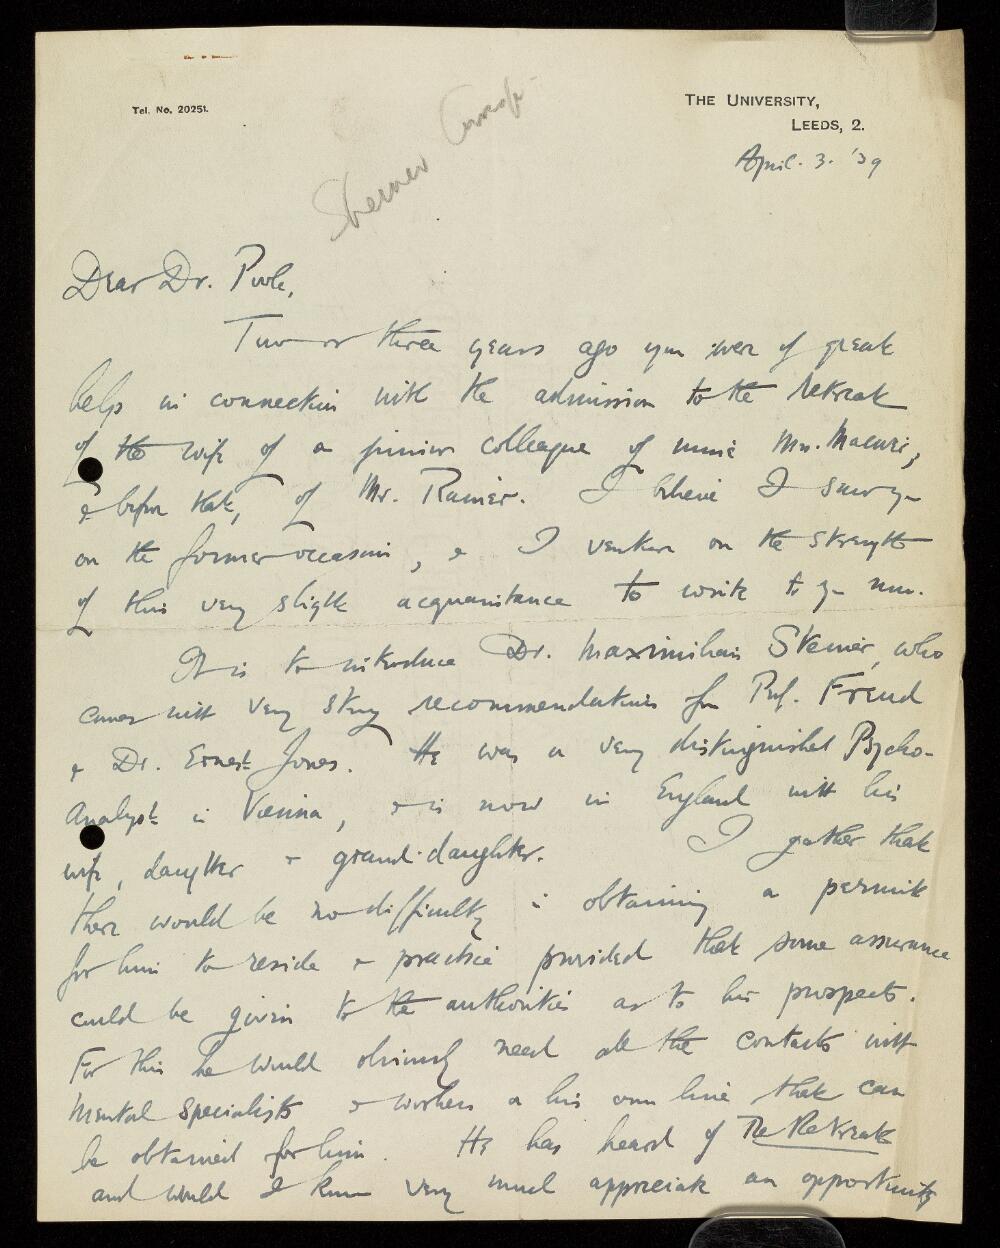 Tel. No. 20251.
THE UNIVERSITY,
LEEDS, 2.
April. 3. '39
Steiner
Dear Dr. Poole,
Two or three years ago you were of great
help in connection with the admission to the Retreat
of the wife of a junior colleague of mine Mrs.
& before that, of Mr. Rainer. I believe I saw you
on the former occasion, & I venture on the strength
of this very slight acquaintance to write to you now.
It is to introduce Dr. Maximilian Steiner, who
comes with very strong recommendations from Prof. Freud
& Dr. Ernest Jones. He was a very distinguished Psycho-
Analyst in Vienna, & is now in England with his
wife, daughter & grand-daughter. I gather that
there would be no difficulty in obtaining a permit
for him to reside & practice provided that some assurance
could be given to the authorities as to his prospects.
For this he would obviously need all the contacts with
Mental Specialists & workers in his own line that can
be obtained for him. He has heard of The Retreat
and would I know very much appreciate an opportunity